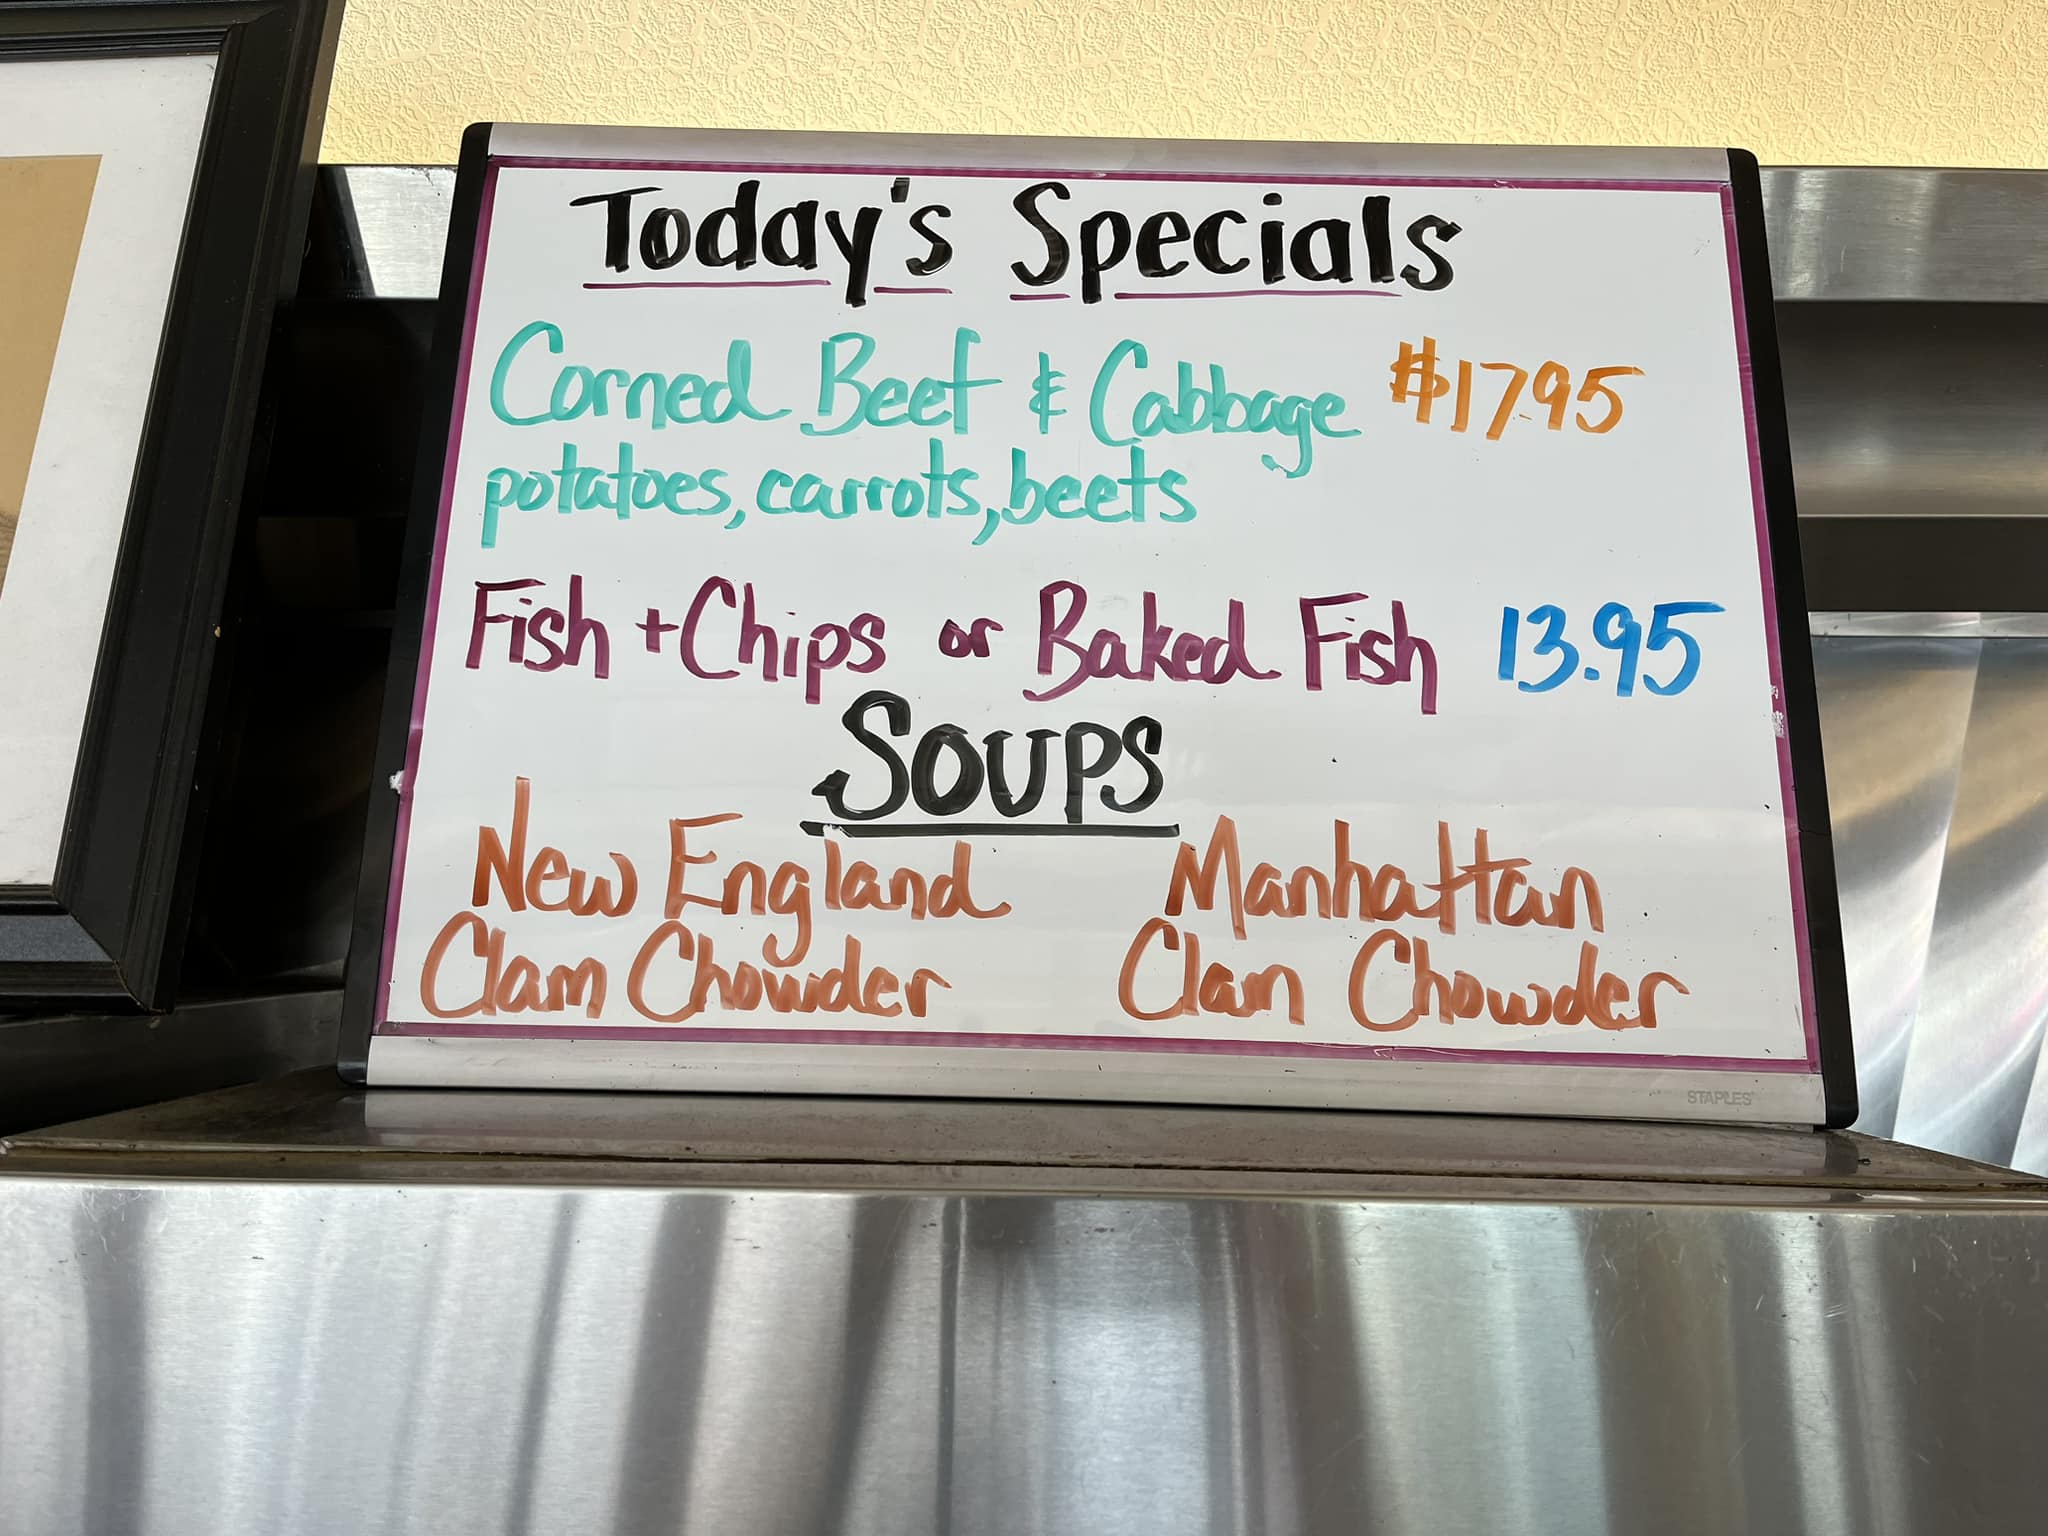 Today's Specials
Corned Beef & Cabbage $17.95
potatoes, carrots, beets
Fish + Chips or Baked Fish 13.95
Soups
New England Manhattan
Clam Chowder Clam Chowder
STAPLES